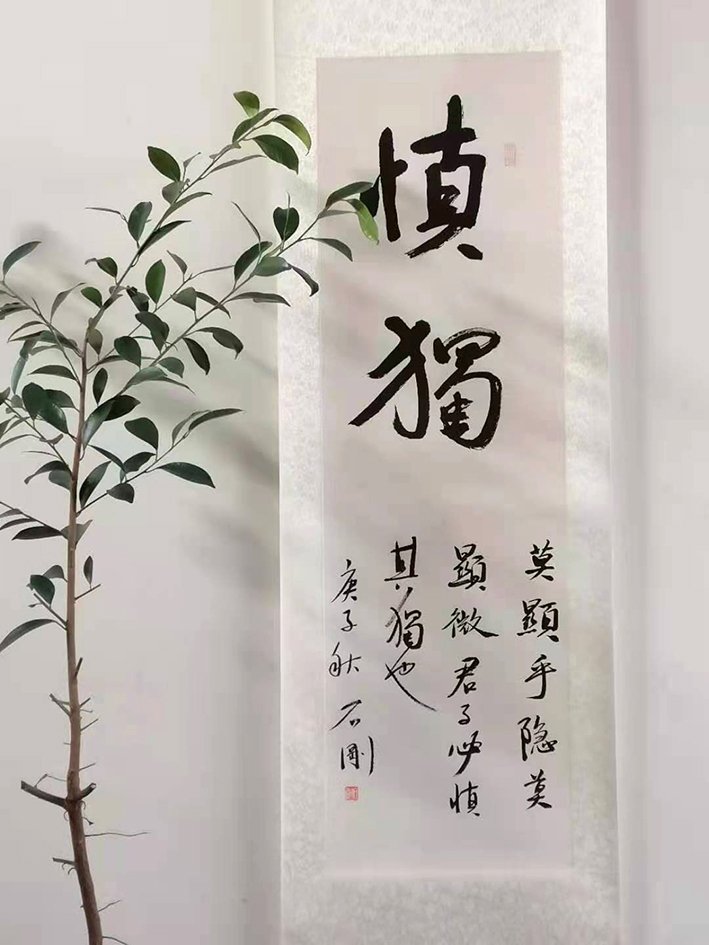 慎獨
莫顯乎隐莫
顯微君子必慎
其獨也
庚子秋 石剛